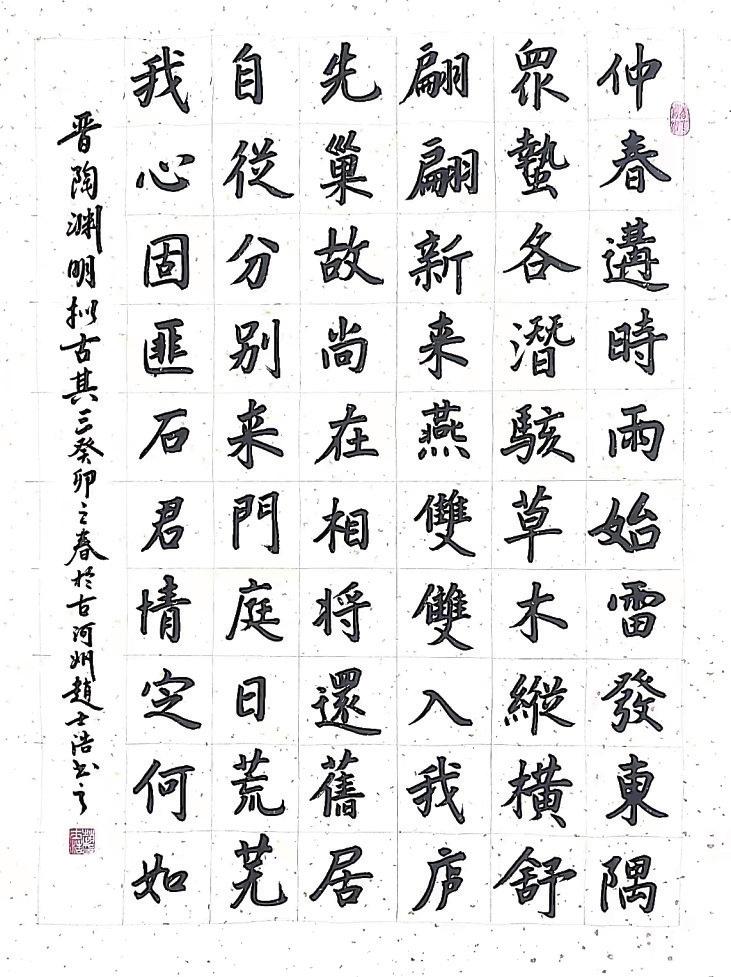 仲春遘時雨始雷發東隅
眾蟄各潛駭草木縱橫舒
翩翩新来燕雙雙入我庐
先巢故尚在相将還舊居
自從分别来門庭日荒芜
我心固匪石君情定何如
晋陶渊明拟古其三癸卯之春於古河州趙士浩书之